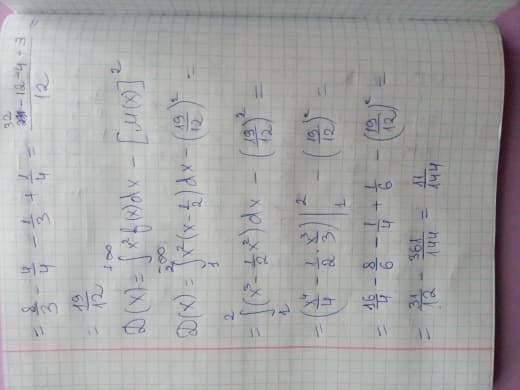 = 8/3 - 4/4 - 1/3 + 1/4 = (32 - 12 - 4 + 3)/12 =
= 19/12
D(x) = ∫_{-∞}^{+∞} x² f(x)dx - [M(x)]²
D(x) = ∫_1^2 x²(x - 1/2)dx - (19/12)² =
= ∫_1^2 (x³ - 1/2 x²)dx - (19/12)² =
= (x⁴/4 - 1/2 · x³/3)|_1^2 - (19/12)² =
= 16/4 - 8/6 - 1/4 + 1/6 - (19/12)² =
= 31/12 - 361/144 = 11/144